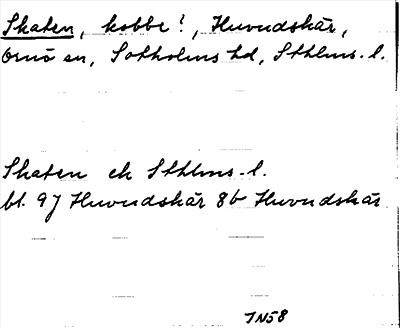 Skaten, kobbe?, Huvudskär,
Ornö sn, Sotholms hd, Sthlms. l.
Skaten ek Sthlms. l.
bl. 97 Huvudskär 8b Huvudskär
IN58